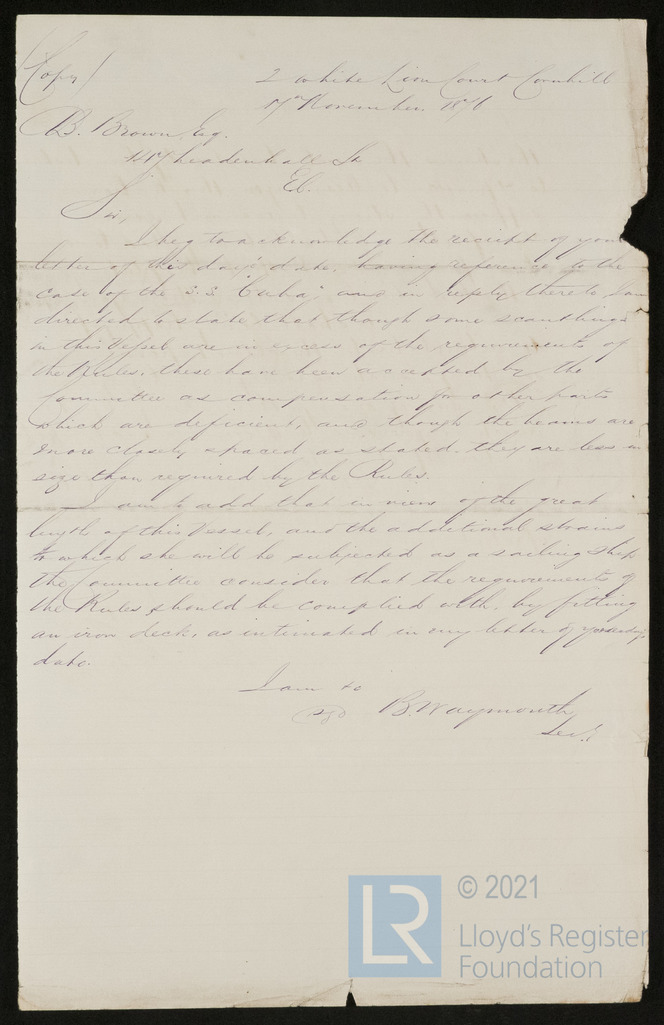 (Copy)
2 White Lion Court Cornhill
17th November 1876
B. Brown Esq.
147 Leadenhall St.
EC.
Sir,
I beg to acknowledge the receipt of your
letter of this day's date, having reference to the
case of the S.S. "Cuba", and in reply thereto, I am
directed to state that though some scantlings
in this Vessel are in excess of the requirements of
the Rules, these have been accepted by the
Committee as compensation for other parts
which are deficient, and though the beams are
more closely spaced as stated, they are less in
size than required by the Rules.
I am to add that in view of the great
length of this Vessel, and the additional strains
to which she will be subjected as a sailing ship
the Committee consider that the requirements of
the Rules should be complied with, by fitting
an iron deck, as intimated in my letter of yesterday's
date.
I am &c
B. Waymouth
Secy.
© 2021
LR
Lloyd's Register
Foundation